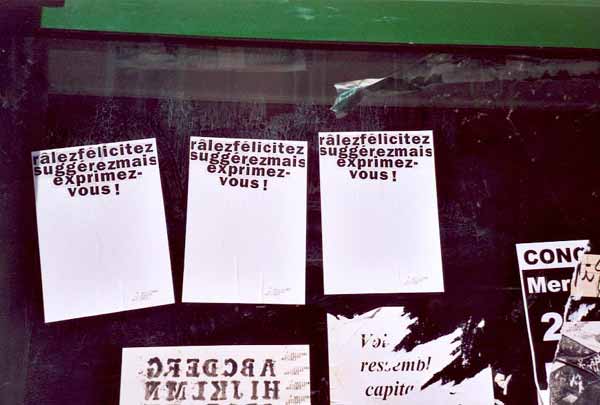 râlezfélicitez
suggérezmais
exprimez-
vous !
râlezfélicitez
suggérezmais
exprimez-
vous !
râlezfélicitez
suggérezmais
exprimez-
vous !
CONG
Mer
2
ABCDEFG
HIJKLMN
Voi
ressembl
capita